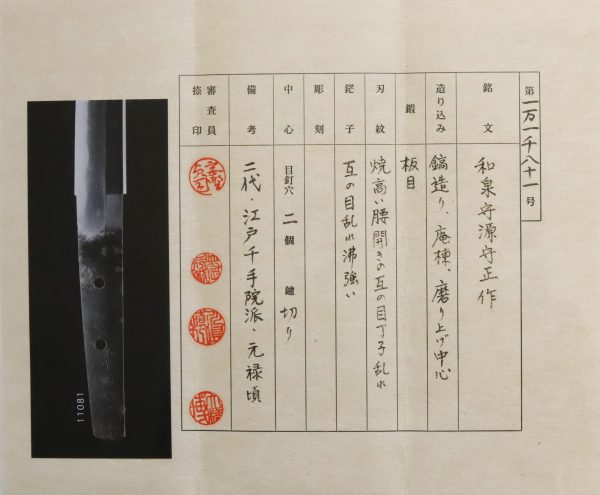 第一万一千八十一号
銘文 和泉守源守正作
造り込み 鎬造り、庵棟、磨り上げ中心
鍛 板目
刃紋 焼高い腰開きの互の目丁子乱れ
鋩子 互の目乱れ沸強い
彫刻
中心 目釘穴 二個 鑢 切り
備考 二代、江戸千手院派、元禄頃
審査員捺印
11081